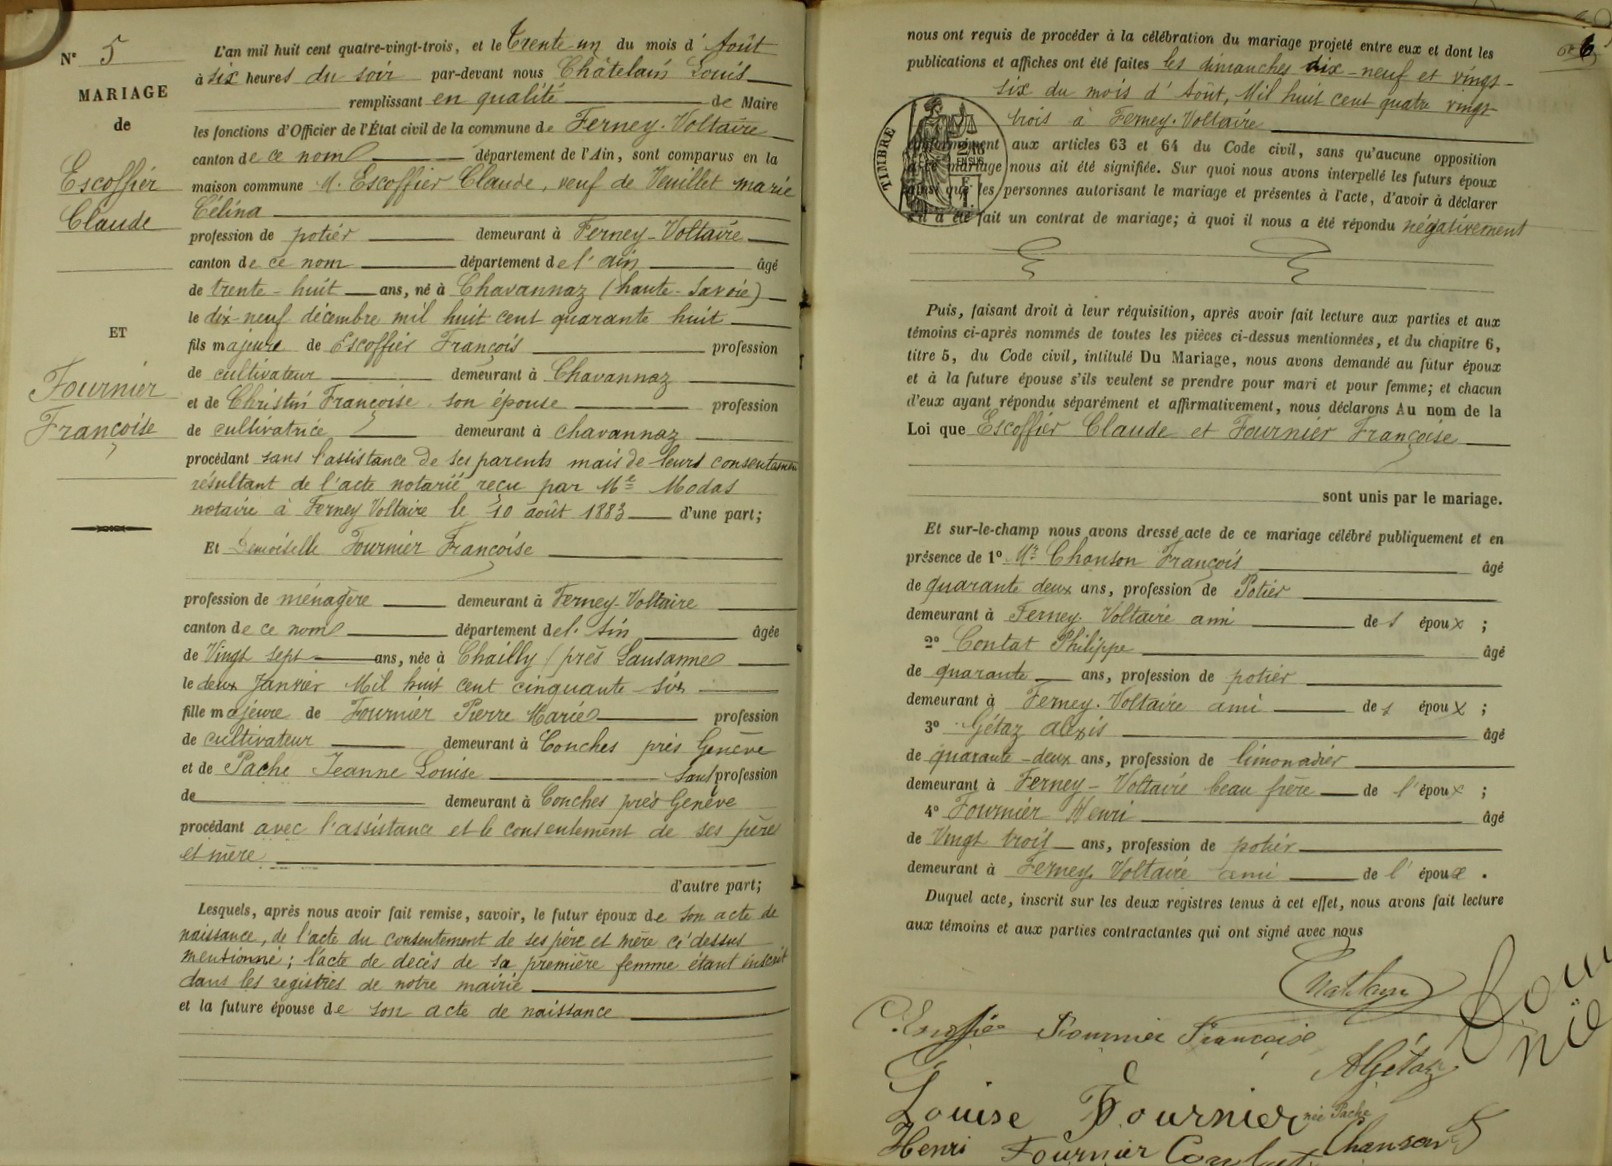 N° 5
MARIAGE
de
Escoffier
Claude
ET
Fournier
Françoise
L'an mil huit cent quatre-vingt-trois, et le Trente-un du mois d' Août
à six heures du soir par-devant nous Châtelain Louis
remplissant en qualité de Maire
les fonctions d'Officier de l'État civil de la commune de Ferney-Voltaire
canton de ce nom département de l'Ain, sont comparus en la
maison commune M. Escoffier Claude, veuf de Vuillet marie
Célina
profession de potier demeurant à Ferney-Voltaire
canton de ce nom département de l'ain âgé
de trente-huit ans, né à Chavannaz (haute-Savoie)
le dix-neuf décembre mil huit cent quarante huit
fils majeur de Escoffier François profession
de cultivateur demeurant à Chavannaz
et de Christin Françoise son épouse profession
de cultivatrice demeurant à chavannaz
procédant sans l'assistance de ses parents mais de leurs consentement
résultant de l'acte notarié reçu par Me Modas
notaire à Ferney Voltaire le 10 août 1883 d'une part;
Et Demoiselle Fournier Françoise
profession de ménagère demeurant à Ferney-Voltaire
canton de ce nom département de l'Ain âgée
de Vingt sept ans, née à Chailly (près Lausanne)
le deux Janvier Mil huit cent cinquante-six
fille majeure de Fournier Pierre Marie profession
de cultivateur demeurant à Conches près Genève
et de Pache Jeanne Louise sans profession
de demeurant à Conches près Genève
procédant avec l'assistance et le consentement de ses père
et mère
d'autre part;
Lesquels, après nous avoir fait remise, savoir, le futur époux de son acte de
naissance, de l'acte du consentement de ses père et mère ci dessus
mentionné; l'acte de decès de sa première femme étant inscrit
dans les registres de notre mairie
et la future épouse de son acte de naissance
6
nous ont requis de procéder à la célébration du mariage projeté entre eux et dont les
publications et affiches ont été faites les dimanches dix-neuf et vingt-
six du mois d' Août, Mil huit cent quatre vingt
trois à Ferney-Voltaire
TIMBRE
conformément aux articles 63 et 64 du Code civil, sans qu'aucune opposition
mariage nous ait été signifiée. Sur quoi nous avons interpellé les futurs époux
ainsi que les personnes autorisant le mariage et présentes à l'acte, d'avoir à déclarer
s'il a été fait un contrat de mariage; à quoi il nous a été répondu négativement
Puis, faisant droit à leur réquisition, après avoir fait lecture aux parties et aux
témoins ci-après nommés de toutes les pièces ci-dessus mentionnées, et du chapitre 6,
titre 5, du Code civil, intitulé Du Mariage, nous avons demandé au futur époux
et à la future épouse s'ils veulent se prendre pour mari et pour femme; et chacun
d'eux ayant répondu séparément et affirmativement, nous déclarons Au nom de la
Loi que Escoffier Claude et Fournier Françoise
sont unis par le mariage.
Et sur-le-champ nous avons dressé acte de ce mariage célébré publiquement et en
présence de 1° Mr Chanson François âgé
de quarante deux ans, profession de Potier
demeurant à Ferney-Voltaire ami des époux ;
2° Contat Philippe âgé
de quarante ans, profession de potier
demeurant à Ferney-Voltaire ami des époux ;
3° Gétaz alexis âgé
de quarante-deux ans, profession de limonadier
demeurant à Ferney-Voltaire beau frère de l'époux ;
4° Fournier Henri âgé
de Vingt trois ans, profession de potier
demeurant à Ferney Voltaire ami de l'époux .
Duquel acte, inscrit sur les deux registres tenus à cet effet, nous avons fait lecture
aux témoins et aux parties contractantes qui ont signé avec nous
Chatelain
C. Escoffier Fournier Francoise
A Gétaz
Louise Fournier née Pache
Henri Fournier Contat Chanson F